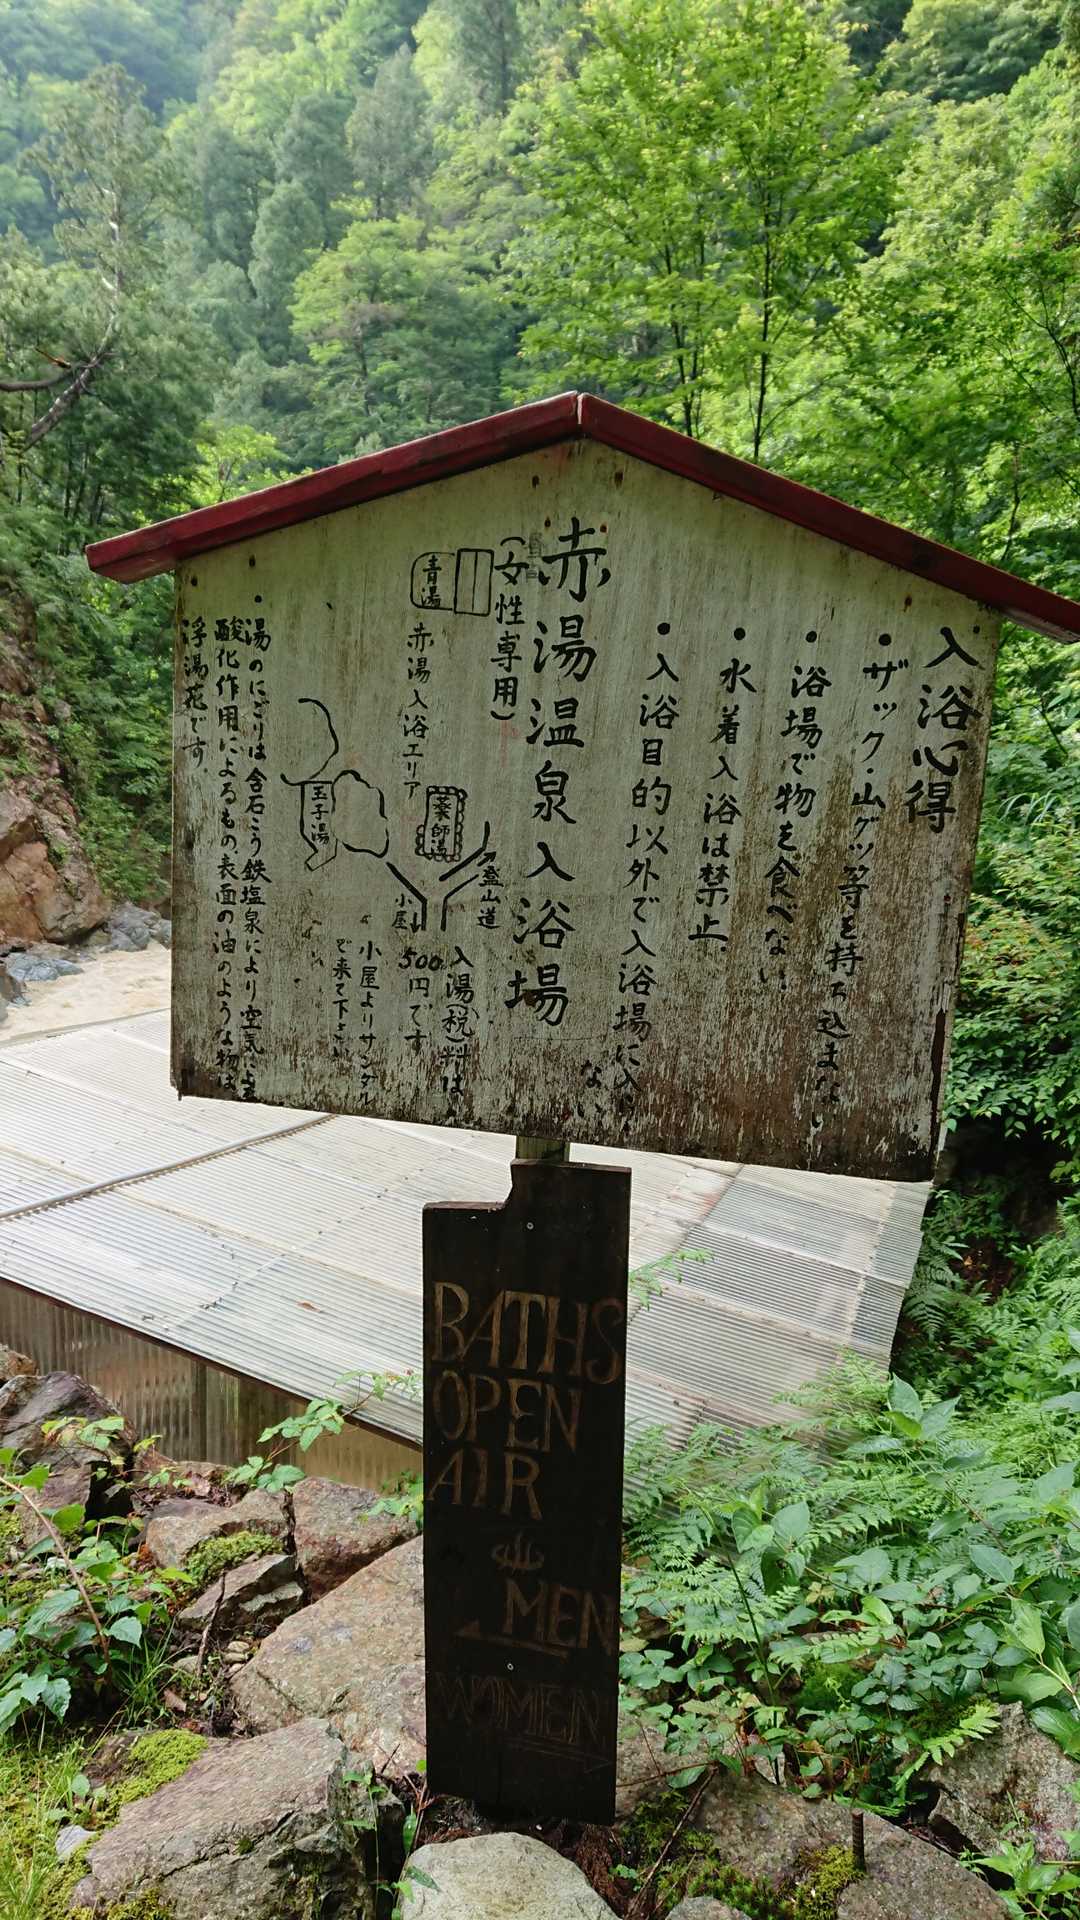 入浴心得
・ザック・山グツ等を持ち込まない
・浴場で物を食べない
・水着入浴は禁止
・入浴目的以外で入浴場に入らない
赤湯温泉入浴場
(女性専用)
青湯
赤湯入浴エリア
薬師湯
玉子湯
登山道
小屋
入湯(税)料は
500円です
小屋よりサンダル
で来て下さい
・湯のにごりは含石こう鉄塩泉により空気に
酸化作用によるもの表面の油のような物は
浮湯花です。
BATHS
OPEN
AIR
MEN
WOMEN